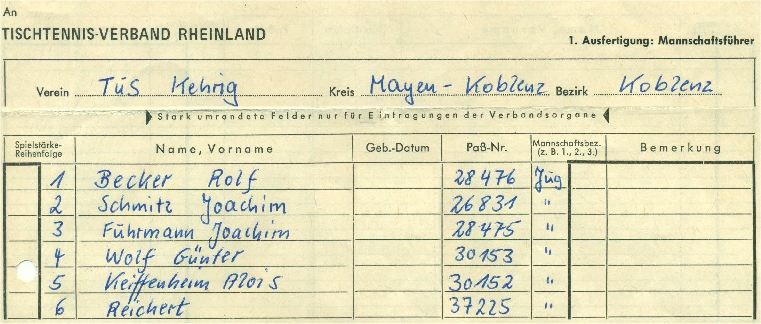 An
TISCHTENNIS-VERBAND RHEINLAND
1. Ausfertigung: Mannschaftsführer
Verein TUS Kehrig Kreis Mayen-Koblenz Bezirk Koblenz
Stark umrandete Felder nur für Eintragungen der Verbandsorgane
Spielstärke-Reihenfolge Name, Vorname Geb.-Datum Paß-Nr. Mannschaftsbez. (z. B. 1., 2., 3.) Bemerkung
1 Becker Rolf 28476 Jug
2 Schmitz Joachim 26831 "
3 Führmann Joachim 28475 "
4 Wolf Günter 30153 "
5 Keiffenheim Alois 30152 "
6 Reichert 37225 "